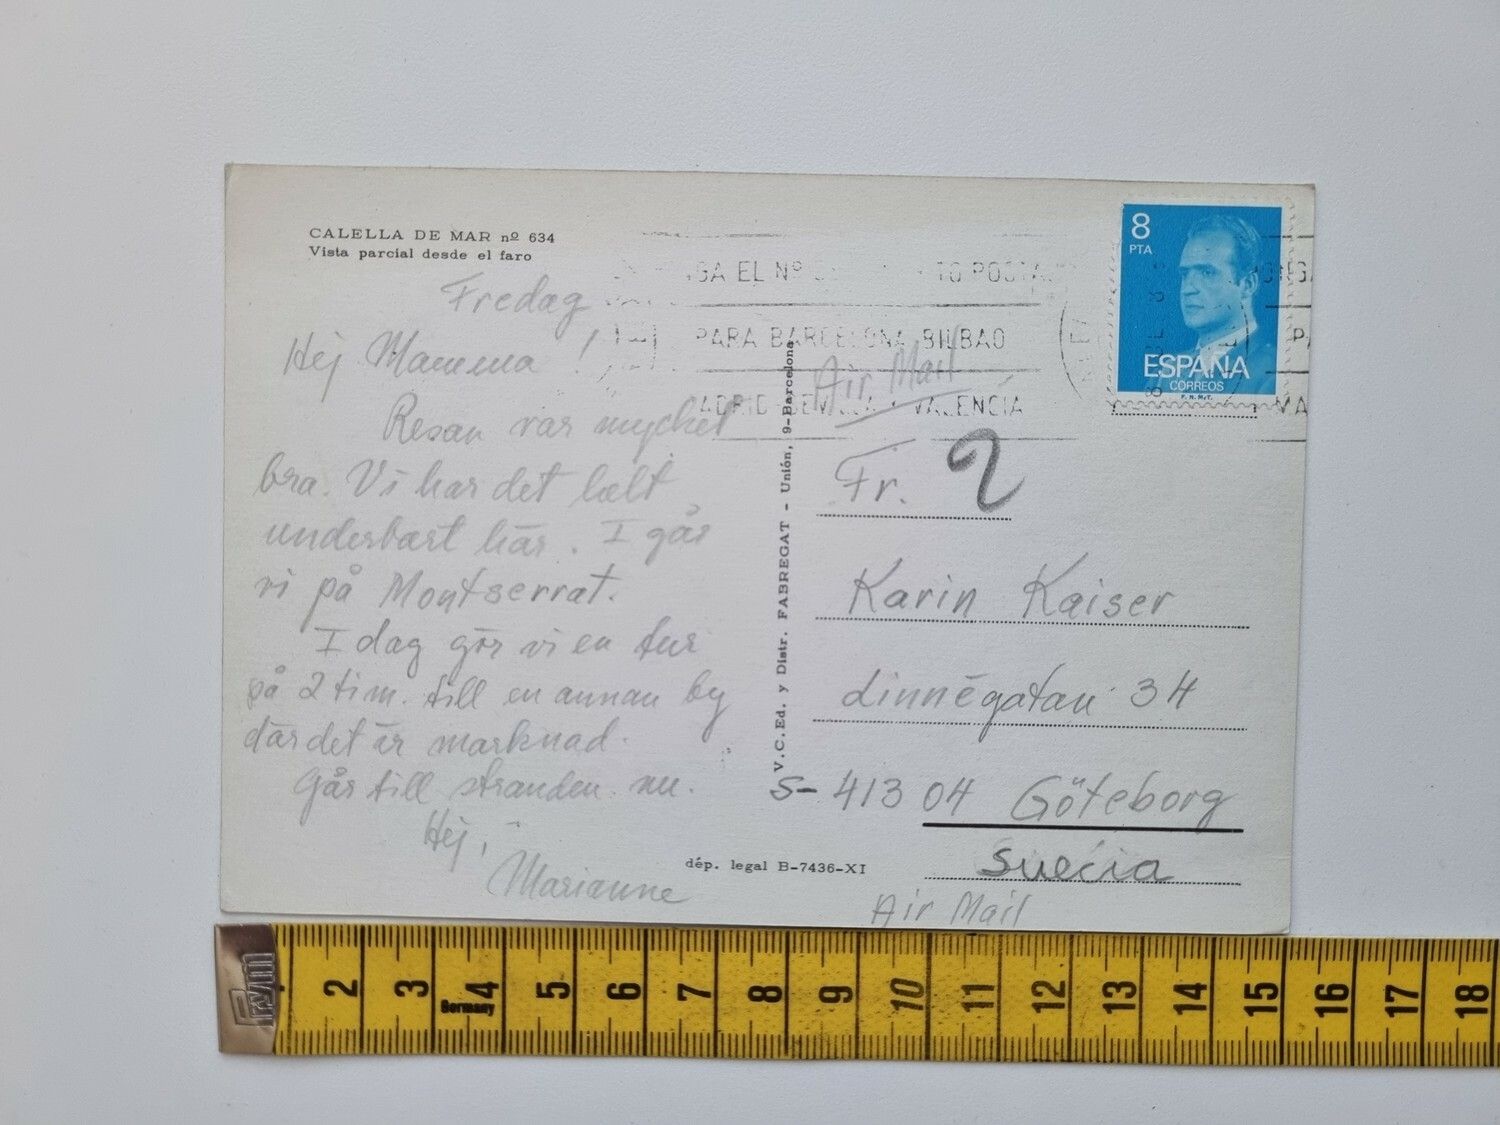 CALELLA DE MAR nº 634
Vista parcial desde el faro
Fredag
Hej Mamma !
Resan var mycket
bra. Vi har det helt
underbart här. I går
vi på Montserrat.
I dag gör vi en tur
på 2 tim. till en annan by
där det är marknad.
Går till stranden nu.
Hej,
Marianne
V.C.Ed. y Distr. FABREGAT - Unión, 9-Barcelona
dép. legal B-7436-XI
GA EL Nº TO POSTA
PARA BARCELONA, BILBAO
MADRID SEVILLA Y VALENCIA
8
PTA
ESPAÑA
CORREOS
F.N.M.T.
Air Mail
Fr. 2
Karin Kaiser
Linnégatan 34
S-413 04 Göteborg
Suecia
Air Mail
Prym
Germany
2 3 4 5 6 7 8 9 10 11 12 13 14 15 16 17 18